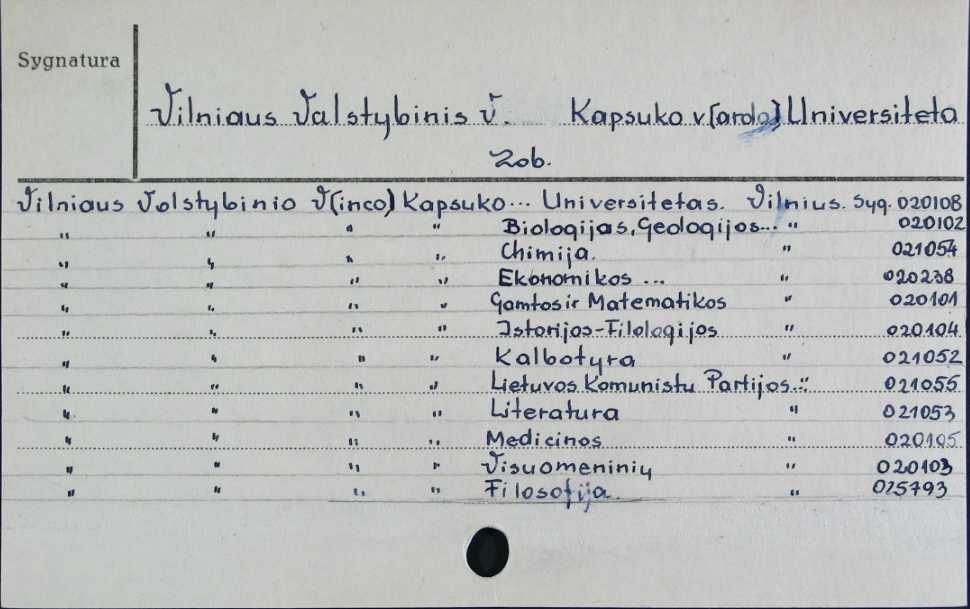 Sygnatura
Vilniaus Valstybinis V. Kapsuko v[ardo] Universiteto
Zob.
Vilniaus Valstybinio V(inco) Kapsuko... Universitetas. Vilnius. Syg. 020108
" " " " Biologijas, Geologijos... " 020102
" " " " Chimija. " 021054
" " " " Ekonomikos ... " 020238
" " " " Gamtos ir Matematikos " 020101
" " " " Istorijos-Filologijos " 020104
" " " " Kalbotyra " 021052
" " " " Lietuvos Komunistu Partijos... " 021055
" " " " Literatura " 021053
" " " " Medicinos " 020105
" " " " Visuomeninių " 020103
" " " " Filosofija. " 025793